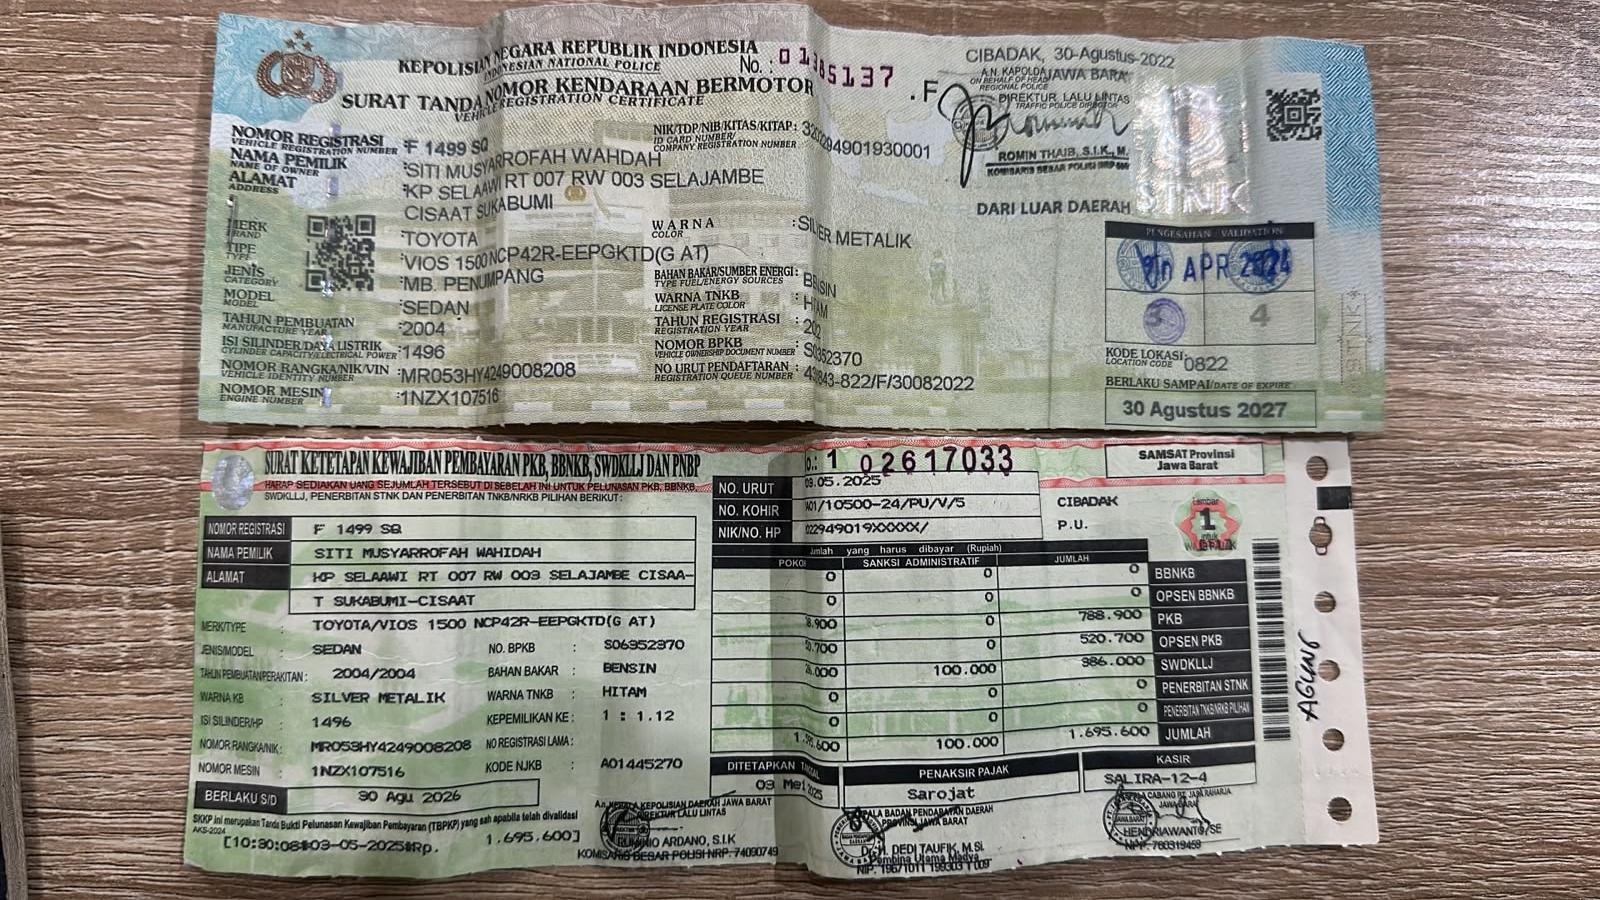 KEPOLISIAN NEGARA REPUBLIK INDONESIA
INDONESIAN NATIONAL POLICE
No. .F
SURAT TANDA NOMOR KENDARAAN BERMOTOR
VEHICLE REGISTRATION CERTIFICATE
NOMOR REGISTRASI : F 1499 SQ
VEHICLE REGISTRATION NUMBER
NAMA PEMILIK : SITI MUSYARROFAH WAHDAH
NAME OF OWNER
ALAMAT : KP SELAAWI RT 007 RW 003 SELAJAMBE
ADDRESS
CISAAT SUKABUMI
MERK : TOYOTA
BRAND
TIPE : VIOS 1500 NCP42R-EEPGKTD(G AT)
TYPE
JENIS : MB. PENUMPANG
CATEGORY
MODEL : SEDAN
MODEL
TAHUN PEMBUATAN : 2004
MANUFACTURE YEAR
ISI SILINDER/DAYA LISTRIK : 1496
CYLINDER CAPACITY/ELECTRICAL POWER
NOMOR RANGKA/NIK/VIN : MR053HY4249008208
VEHICLE IDENTITY NUMBER
NOMOR MESIN : 1NZX107516
ENGINE NUMBER
NIK/TDP/NIB/KITAS/KITAP :
ID CARD NUMBER/
COMPANY REGISTRATION NUMBER
WARNA : SILVER METALIK
COLOR
BAHAN BAKAR/SUMBER ENERGI : BENSIN
TYPE FUEL/ENERGY SOURCES
WARNA TNKB : HITAM
LICENSE PLATE COLOR
TAHUN REGISTRASI :
REGISTRATION YEAR
NOMOR BPKB :
VEHICLE OWNERSHIP DOCUMENT NUMBER
NO URUT PENDAFTARAN :
REGISTRATION QUEUE NUMBER
CIBADAK, 30-Agustus-2022
A.N. KAPOLDA JAWA BARAT
ON BEHALF OF HEAD
REGIONAL POLICE
DIREKTUR LALU LINTAS
TRAFFIC POLICE DIRECTOR
ROMIN THAIB, S.I.K., M.
KOMISARIS BESAR POLISI NRP
DARI LUAR DAERAH
STNK
PENGESAHAN VALIDATION
APR 2024
3 4
KODE LOKASI : 0822
LOCATION CODE
BERLAKU SAMPAI/DATE OF EXPIRE
30 Agustus 2027
STNK
SURAT KETETAPAN KEWAJIBAN PEMBAYARAN PKB, BBNKB, SWDKLLJ DAN PNBP
HARAP SEDIAKAN UANG SEJUMLAH TERSEBUT DI SEBELAH INI UNTUK PELUNASAN PKB, BBNKB,
SWDKLLJ, PENERBITAN STNK DAN PENERBITAN TNKB/NRKB PILIHAN BERIKUT :
NOMOR REGISTRASI F 1499 SQ
NAMA PEMILIK SITI MUSYARROFAH WAHIDAH
ALAMAT KP SELAAWI RT 007 RW 003 SELAJAMBE CISAA-
T SUKABUMI-CISAAT
MERK/TYPE : TOYOTA/VIOS 1500 NCP42R-EEPGKTD(G AT)
JENIS/MODEL : SEDAN
TAHUN PEMBUATAN/PERAKITAN : 2004/2004
WARNA KB : SILVER METALIK
ISI SILINDER/HP : 1496
NOMOR RANGKA/NIK : MR053HY4249008208
NOMOR MESIN : 1NZX107516
BERLAKU S/D 30 Agu 2026
NO. BPKB : S06352370
BAHAN BAKAR : BENSIN
WARNA TNKB : HITAM
KEPEMILIKAN KE : 1 : 1.12
NO REGISTRASI LAMA :
KODE NJKB : A01445270
SKKP ini merupakan Tanda Bukti Pelunasan Kewajiban Pembayaran (TBPKP) yang sah apabila telah divalidasi
AKS-2024
[10:30:08#03-05-2025#Rp. 1.695.600]
A.n. KEPALA KEPOLISIAN DAERAH JAWA BARAT
DIREKTUR LALU LINTAS
ARDANO, S.I.K
KOMISARIS BESAR POLISI NRP. 74090749
1 02617033
NO. URUT .05.2025
NO. KOHIR /10500-24/PU/V/5
NIK/NO. HP
CIBADAK
P.U.
SAMSAT Provinsi
Jawa Barat
Lembar
1
untuk
Jumlah yang harus dibayar (Rupiah)
POKOK SANKSI ADMINISTRATIF JUMLAH
0 0 0 BBNKB
0 0 0 OPSEN BBNKB
0 788.900 PKB
0 520.700 OPSEN PKB
100.000 386.000 SWDKLLJ
0 0 0 PENERBITAN STNK
0 0 0 PENERBITAN TNKB/NRKB PILIHAN
100.000 1.695.600 JUMLAH
DITETAPKAN TANGGAL
03 Mei 2025
PENAKSIR PAJAK
Sarojat
KEPALA BADAN PENDAPATAN DAERAH
PROVINSI JAWA BARAT
DEDI TAUFIK, M.Si.
Pembina Utama Madya
KASIR
SALIRA-12-4
CABANG PT. JASA RAHARJA
JAWA BARAT
HENDRIAWANTO, SE
NPP. 760319459
AGUNG